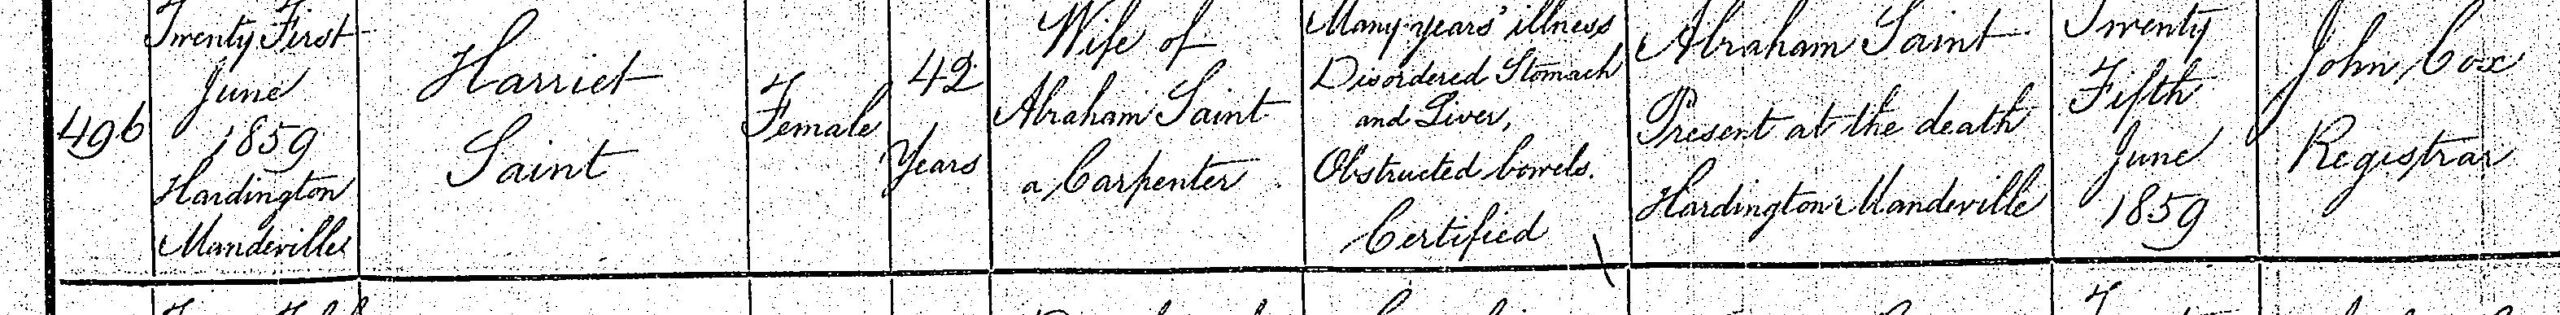 496
Twenty First
June
1859
Hardington
Mandeville
Harriet
Saint
Female
42
Years
Wife of
Abraham Saint
a Carpenter
Many years' illness
Disordered Stomach
and Liver,
Obstructed bowels.
Certified
Abraham Saint
Present at the death
Hardington Mandeville
Twenty
Fifth
June
1859
John Cox
Registrar